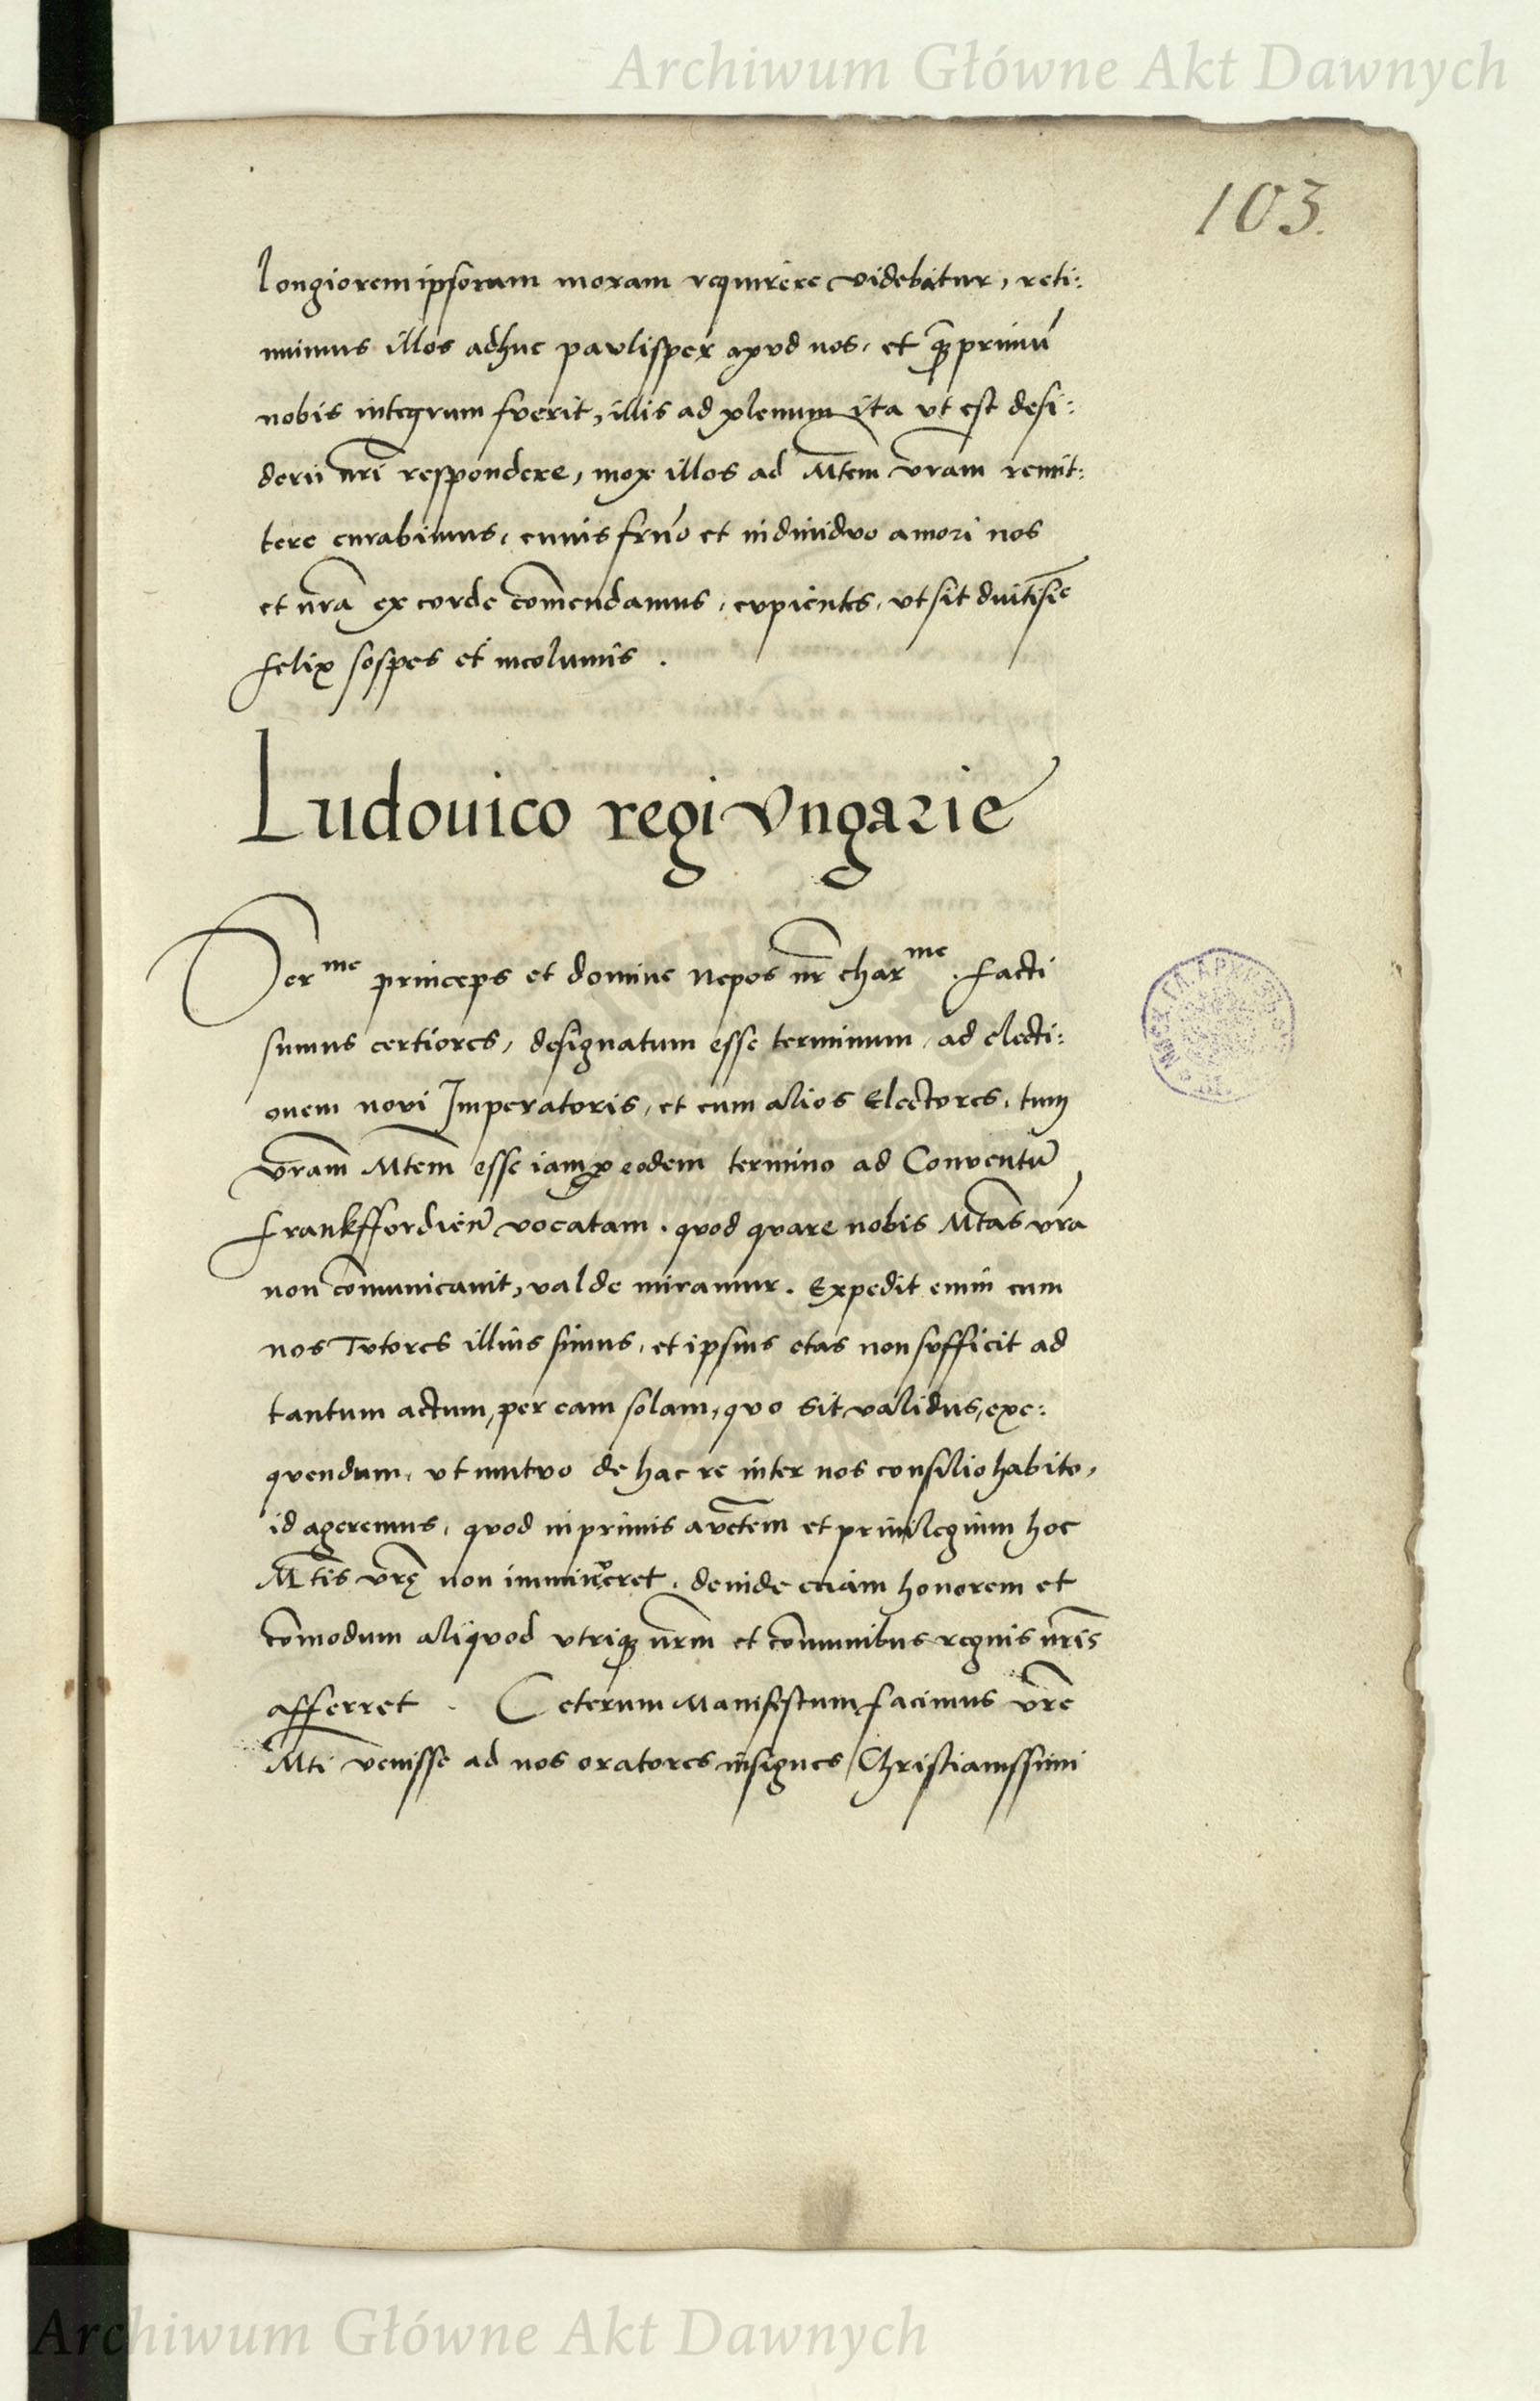 Archiwum Główne Akt Dawnych
103.
longiorem ipsorum moram requirere videbitur, reti:
nuimus illos adhuc paulisper apud nos, et q̄ȝprimū
nobis integrum fuerit, illis ad plenum ita ut est desi:
derii nr̄i respondere, mox illos ad Mtēm vr̄am remit:
tere curabimus, cuius frn̄o et individuo amori nos
et nr̄a ex corde com̄endamus, cupientes, ut sit duitiss̄ie
felix sospes et incolumis .
Ludovico regi Vngarie
Serme princeps et domine Nepos nr̄ charme. Facti
sumus certiores, designatum esse terminum, ad electi:
onem novi Imperatoris, et cum alios Electores, tum
vr̄am Mtēm esse iam ꝓ eodem termino ad Conventū
Frankffordien̄ vocatam. quod quare nobis Mtās vr̄a
non com̄unicavit, valde miramur. Expedit enim cum
nos Tutores illius simus, et ipsius etas non sufficit ad
tantum actum, per eam solam, quo sit validus, exe:
quendum, ut mutuo de hac re inter nos consilio habito,
id ageremus, quod inprimis auctēm et privilegium hoc
Mtīs vr̄ę non imminueret. deinde etiam honorem et
com̄odum aliquod utriqȝ nr̄m et com̄unibus regnis nr̄is
afferret . Ceterum Manifestum facimus vr̄e
Mtī venisse ad nos oratores insignes Christianissimi
Archiwum Główne Akt Dawnych